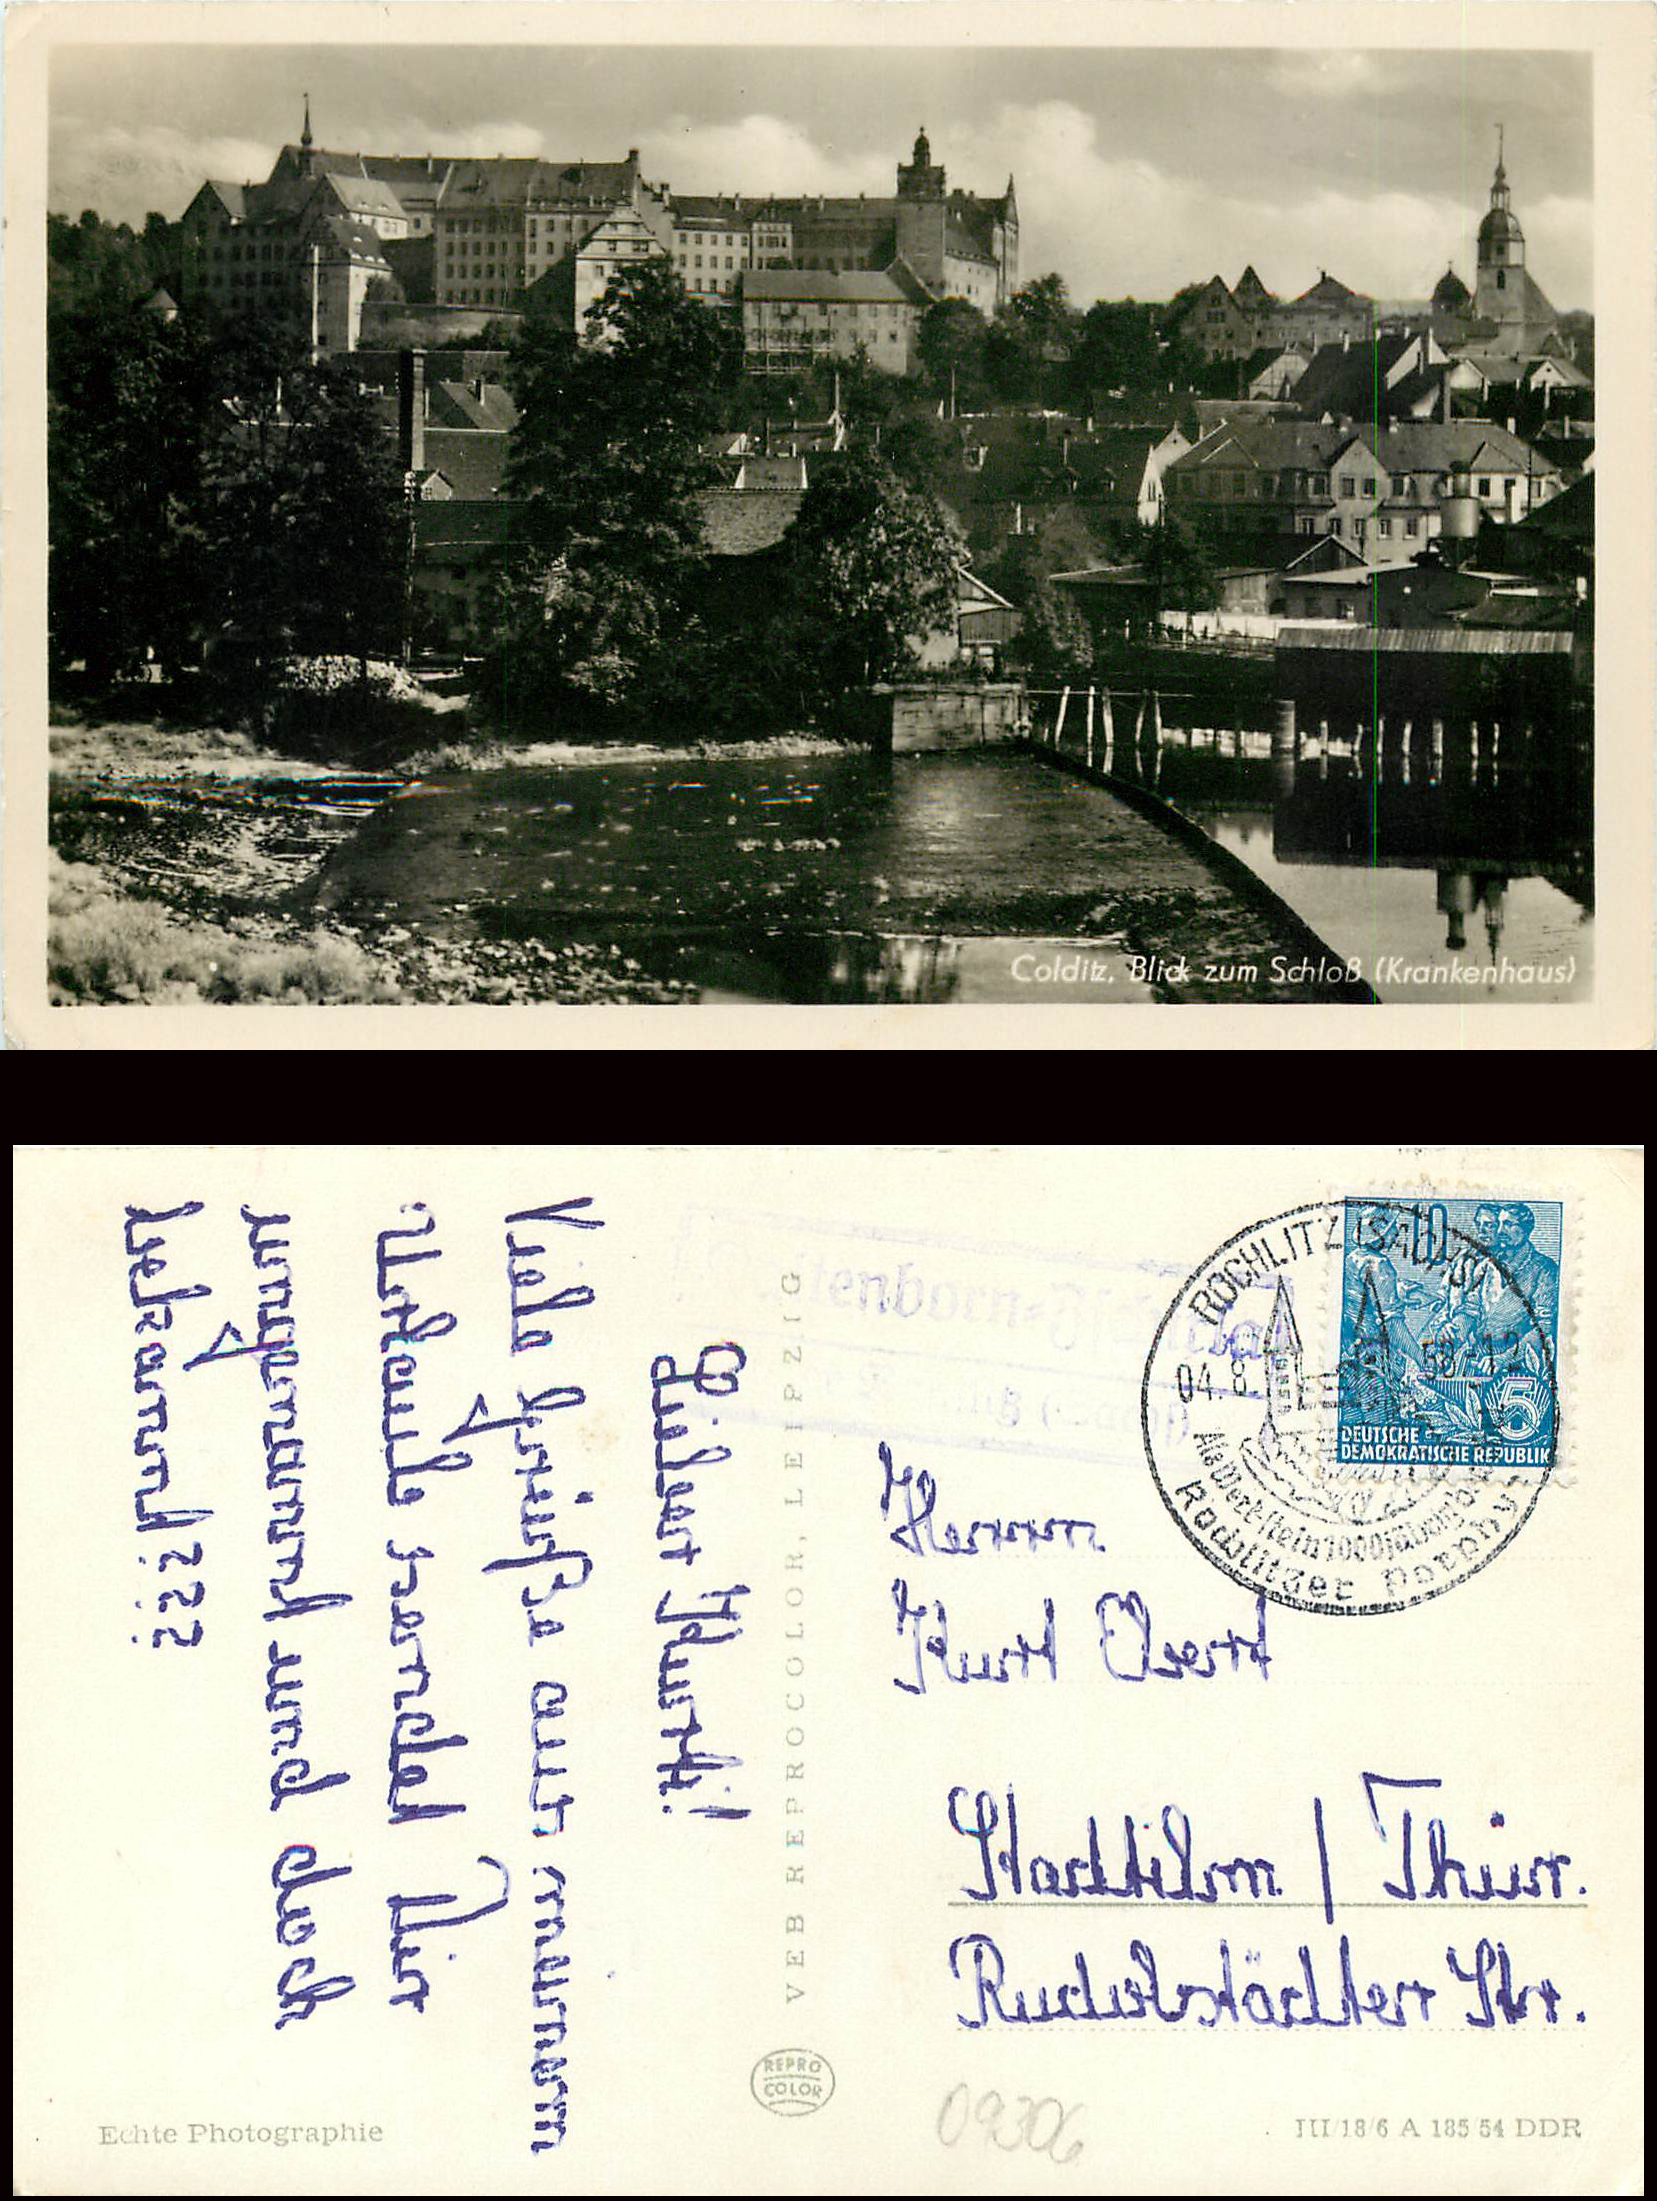 Colditz, Blick zum Schloß (Krankenhaus)
ROCHLITZ (SACHS)
04.8. 58-12
Als Werkstein 1000jährig
Rochlitzer Porphyr
10
5
DEUTSCHE
DEMOKRATISCHE REPUBLIK
Lieber Kurt!
Viele Grüße aus meinem
Urlaub sendet Dir
ungenannt und doch
bekannt ? ? ?
VEB REPROCOLOR, LEIPZIG
REPRO
COLOR
Herrn
Kurt Ebert
Stadtilm / Thür.
Rudolstädter Str.
09306
Echte Photographie
III/18/6 A 185/54 DDR